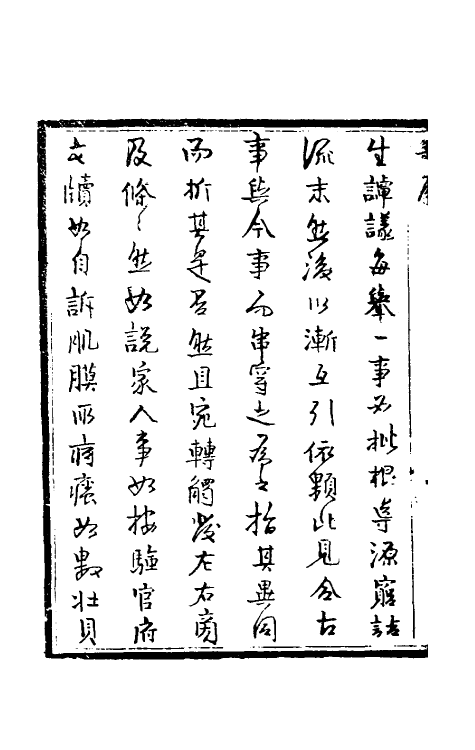 生譚議每舉一事必批根導源窮詰
流末然後以漸互引依類比見合古
事與今事而串穿之為之指其異同
而析其是否然且宛轉觸發左右商
及條〻然如說家人事如按驗官府
文牘如自訴肌膜所疴癢如數壯貝